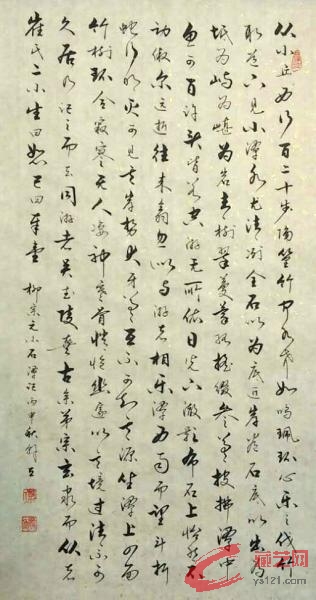 从小丘西行百二十步隔篁竹闻水声如鸣珮环心乐之伐竹
取道下见小潭水尤清冽全石以为底近岸卷石底以出为
坻为屿为嵁为岩青树翠蔓蒙络摇缀参差披拂潭中
鱼可百许头皆若空游无所依日光下澈影布石上怡然不
动俶尔远逝往来翕忽似与游者相乐潭西南而望斗折
蛇行明灭可见其岸势犬牙差互不可知其源坐潭上四面
竹树环合寂寥无人凄神寒骨悄怆幽邃以其境过清不可
久居乃记之而去同游者吴武陵龚古余弟宗玄隶而从者
崔氏二小生曰恕己曰奉壹
柳宗元小石潭记丙申秋
ys121.com